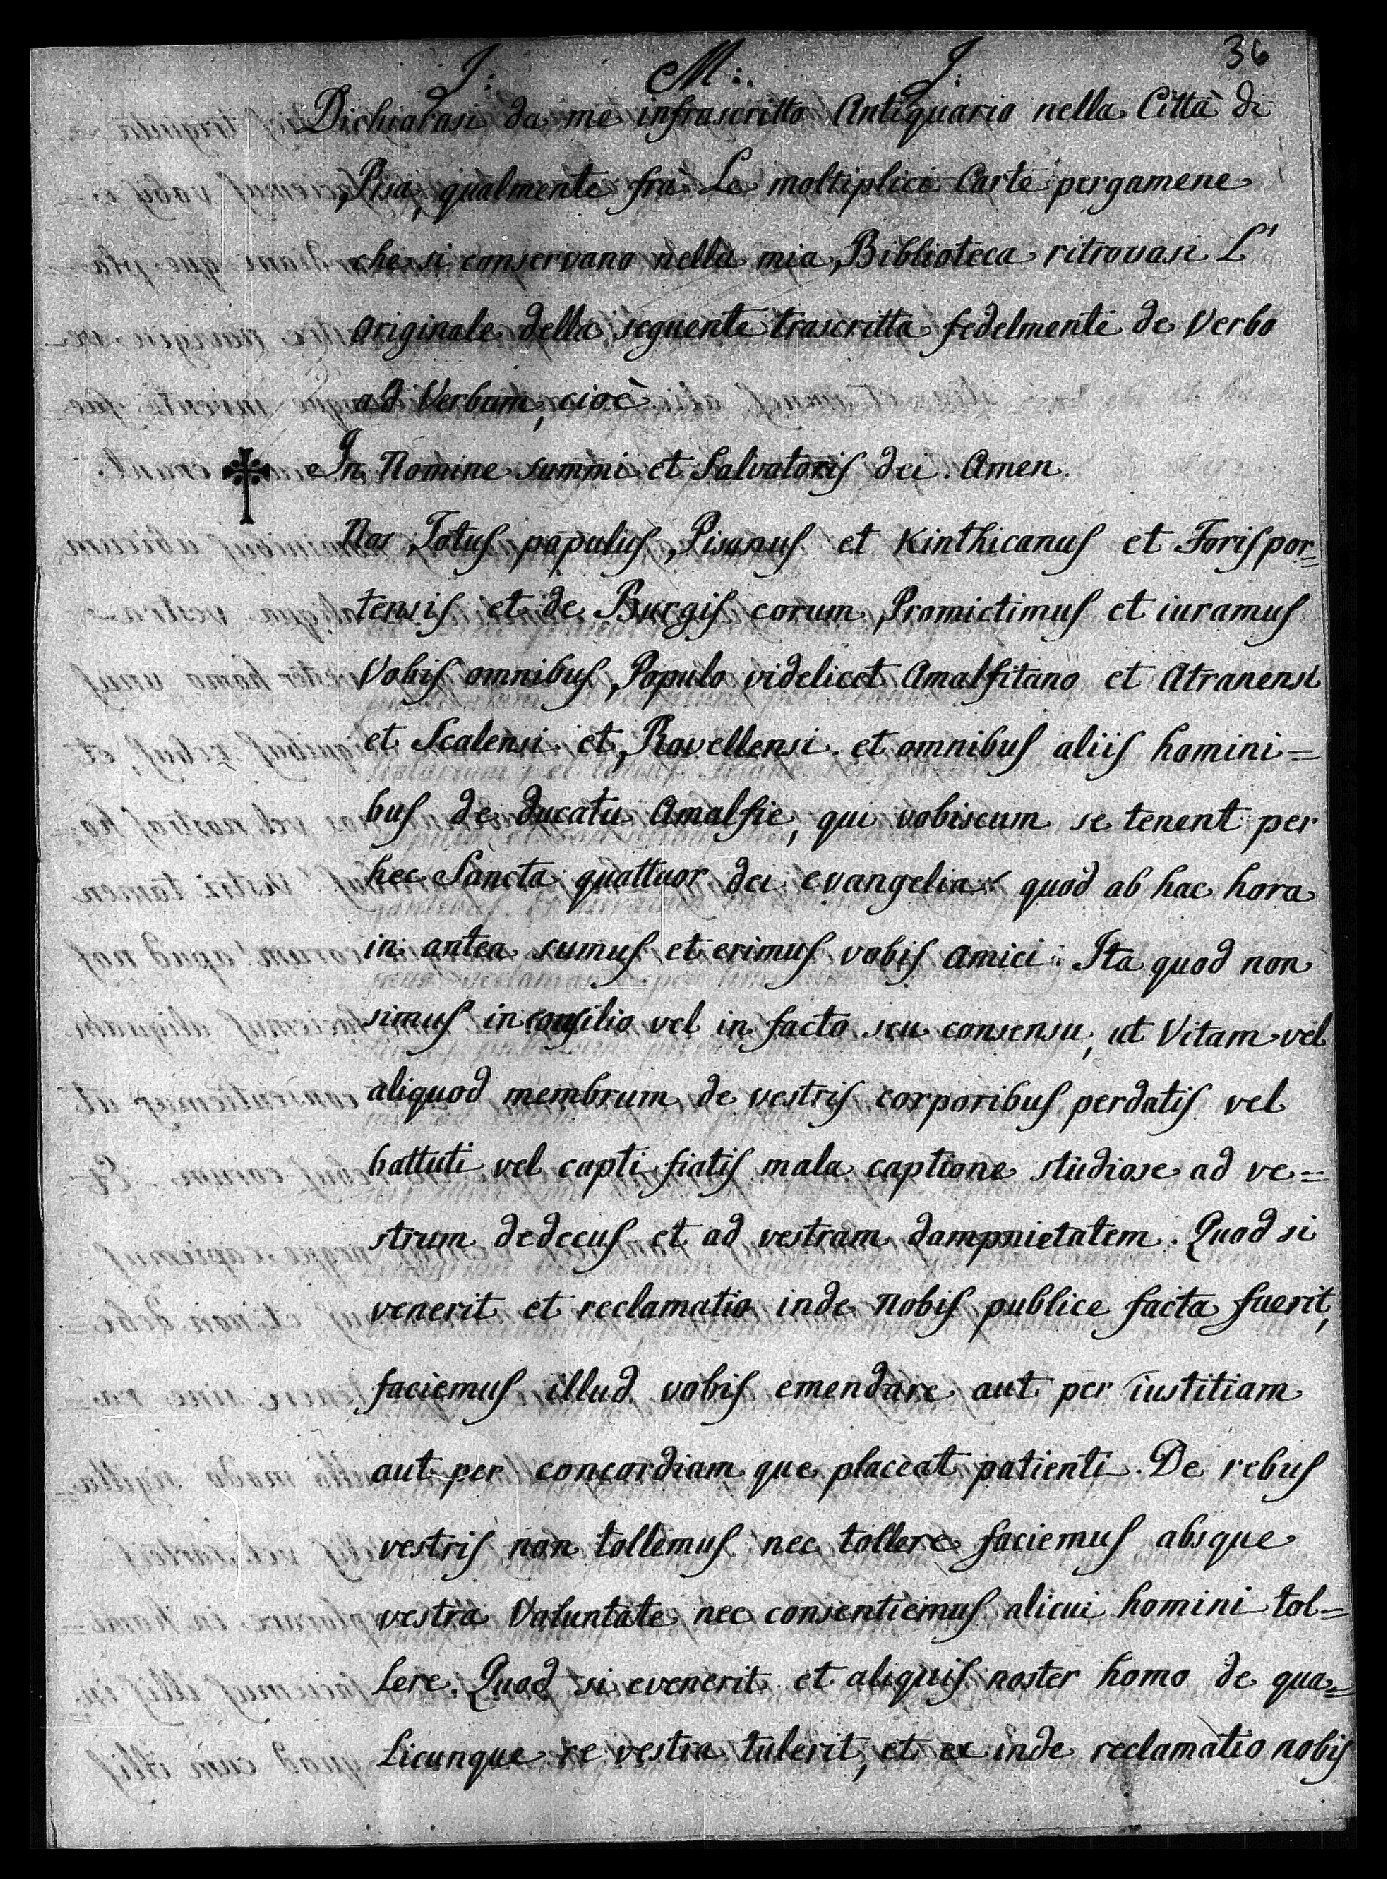 36
J: M: J:
Dichiarasi da me infrascritto Antiquario nella Città di
Pisa, qualmente frà Le moltiplici Carte pergamene
che si conservano nella mia Biblioteca ritrovasi L'
originale della seguente trascritta fedelmente de Verbo
ad Verbum, cioè
In Nomine summi et Salvatoris dei. Amen.
Nos Totus populus Pisanus et Kinthicanus et Forispor=
tensis et de Burgis eorum Promictimus et iuramus
Vobis omnibus Populo videlicet Amalfitano et Atranensi
et Scalensi et Ravellensi et omnibus aliis homini=
bus de ducatu Amalfie, qui vobiscum se tenent per
hec Sancta quattuor dei evangelia quod ab hac hora
in antea sumus et erimus vobis amici: Ita quod non
simus in consilio vel in facto seu consensu, ut Vitam vel
aliquod membrum de vestris corporibus perdatis vel
battuti vel capti fiatis mala captione studiose ad ve=
strum dedecus et ad vestram dampnietatem. Quod si
venerit et reclamatio inde nobis publice facta fuerit,
faciemus illud vobis emendare aut per iustitiam
aut per concordiam que placeat patienti. De rebus
vestris non tollemus nec tollere faciemus absque
vestra Voluntate nec consentiemus alicui homini tol=
lere. Quod si evenerit et aliquis noster homo de qua=
licunque re vestra tulerit, et ex inde reclamatio nobis